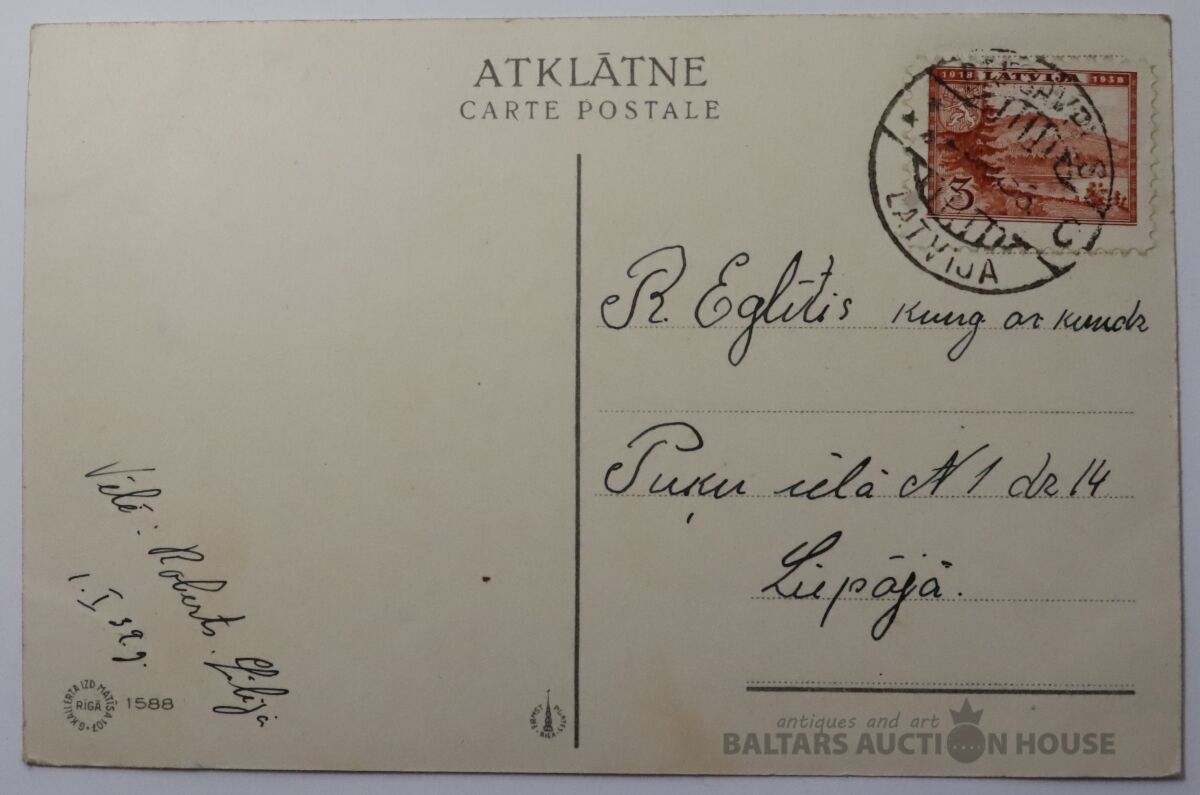 ATKLĀTNE
CARTE POSTALE
1918 LATVIJA 1938
3
LATVIJA
R. Eglītis kung ar kundz
Puķu ielā N 1 dz 14
Liepājā.
Vēlē: Roberts.
1. I 39.g.
G. KALLERTA IZD. MATĪSA 107
RĪGĀ
1588
antiques and art
BALTARS AUCTION HOUSE